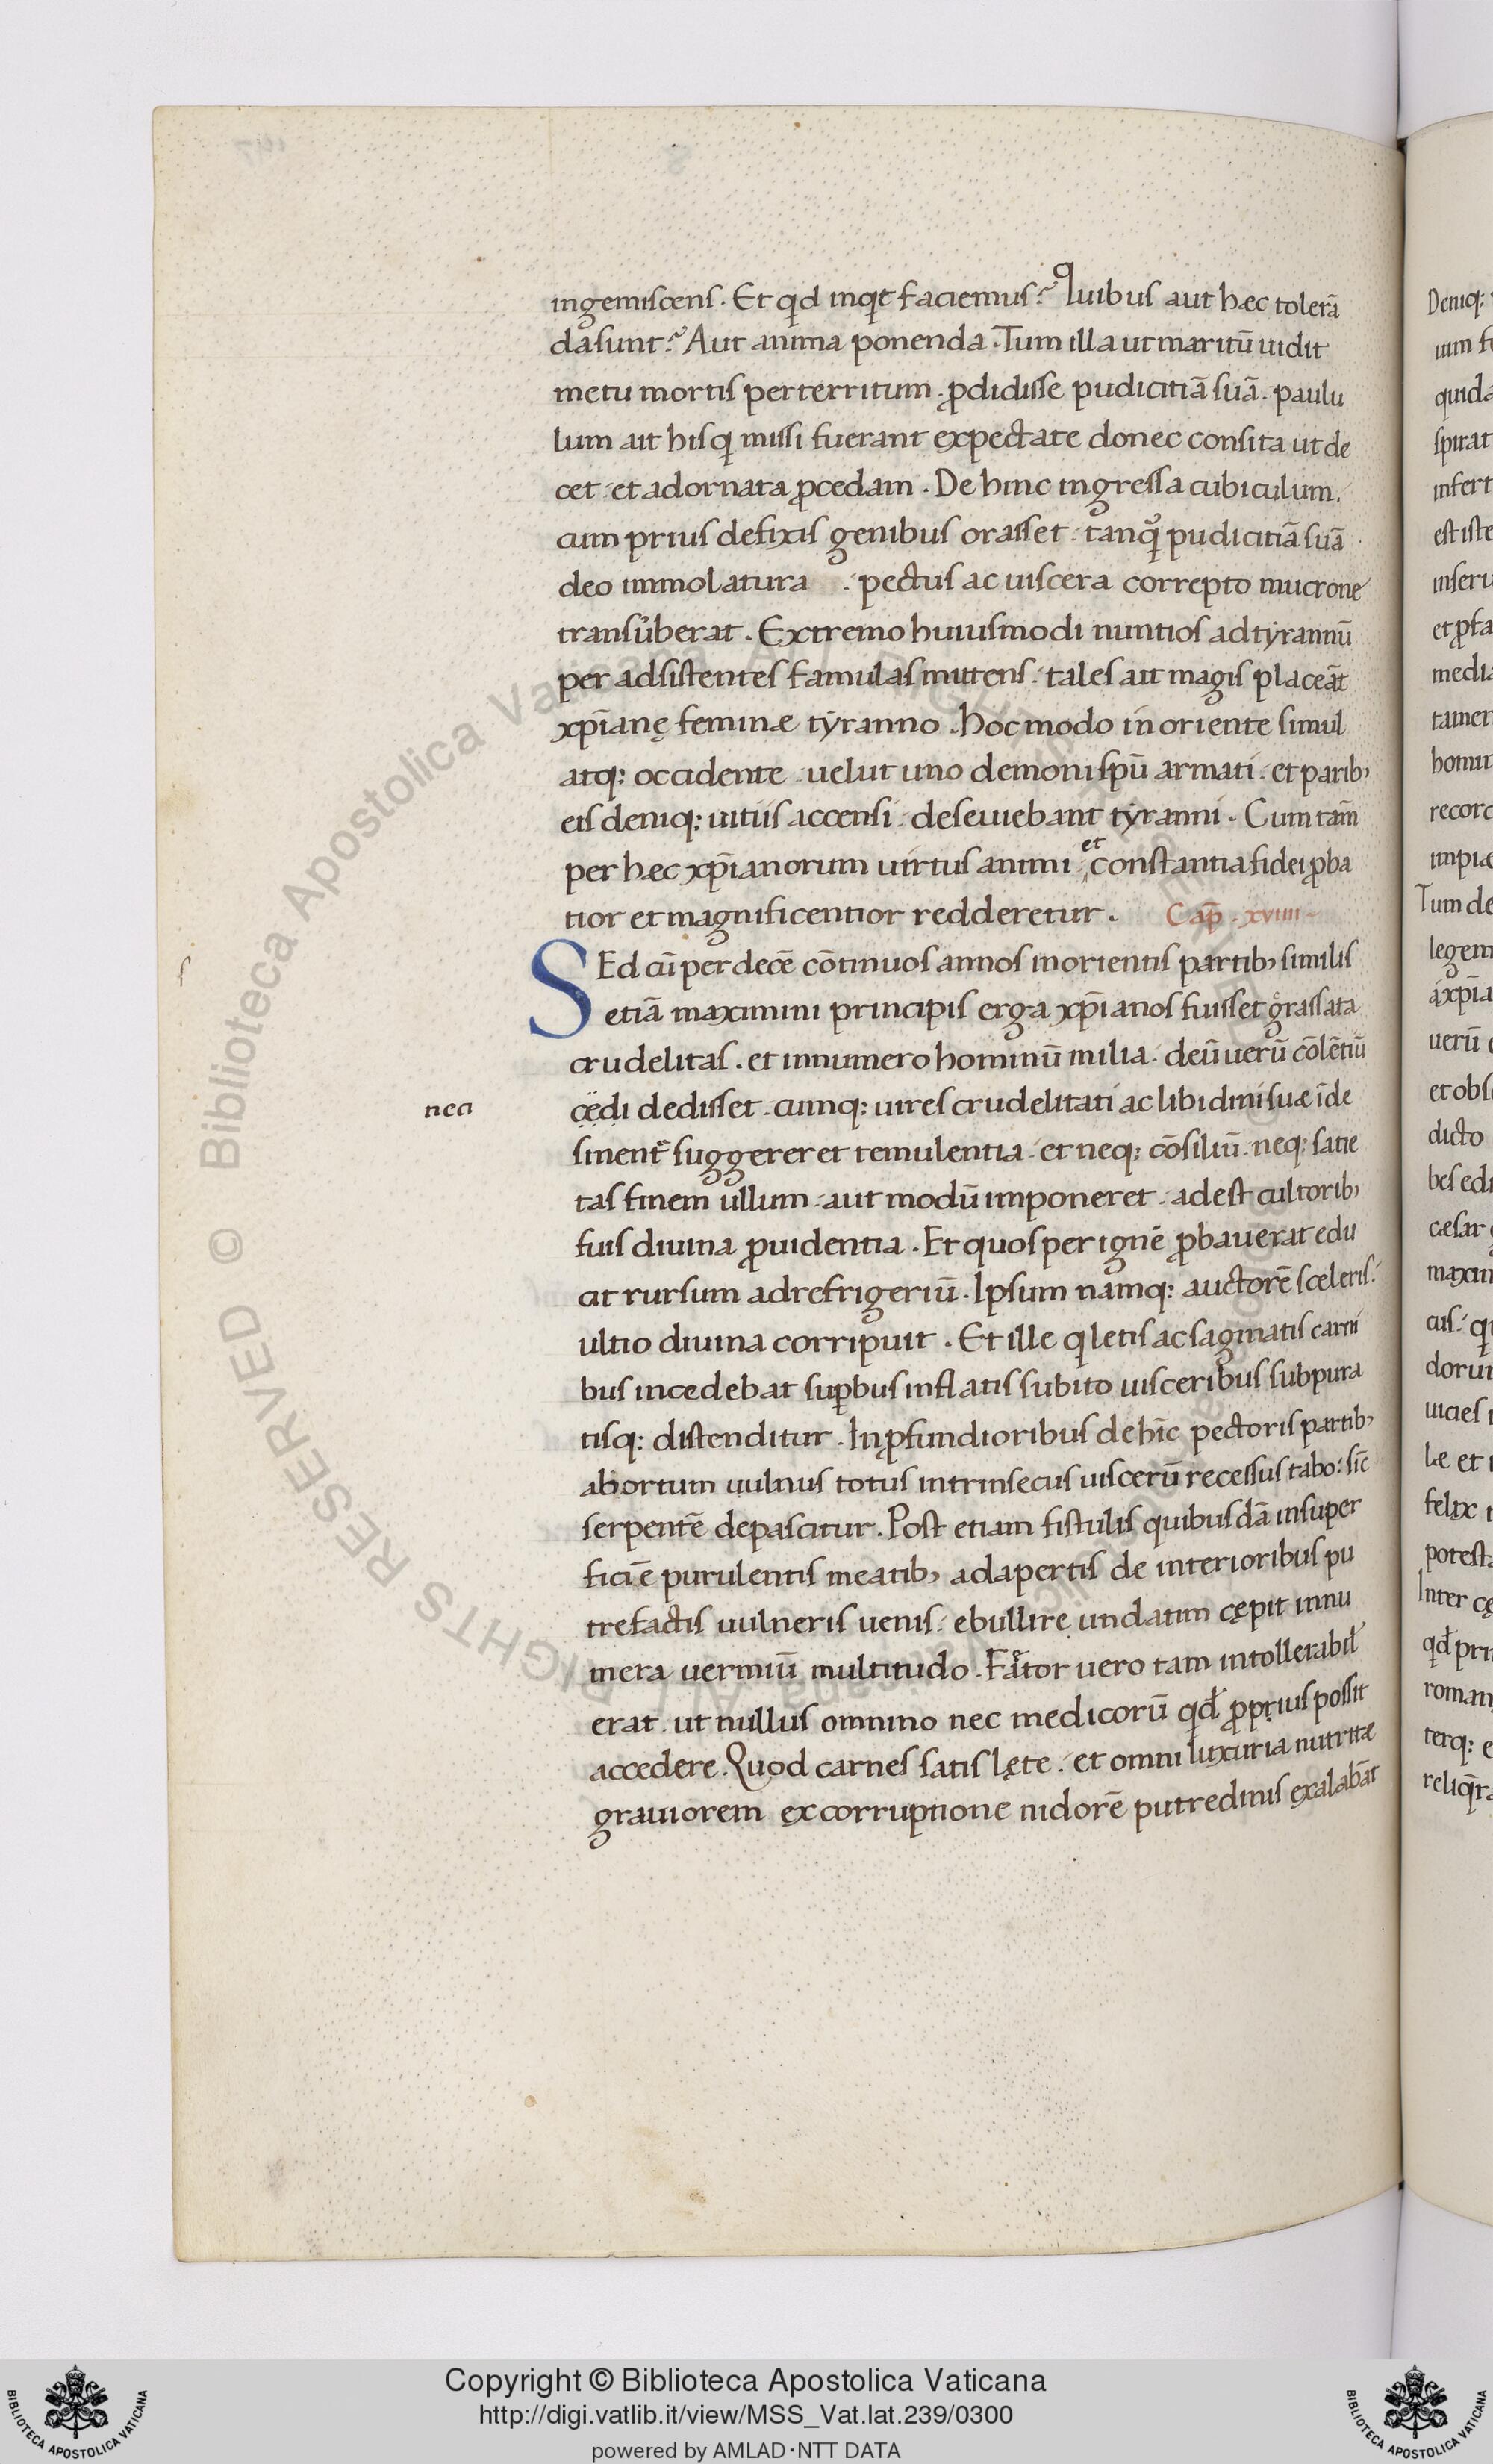 ingemiscens. Et qd inqt faciemus? Quibus aut hæc tolerā
da sunt? Aut anima ponenda. Tum illa ut maritū uidit
metu mortis perterritum. ꝓdidisse pudicitiā suā. paulu
lum ait his q missi fuerant expectate donec consita ut de
cet. et adornata ꝓcedam. De hinc ingressa cubiculum.
cum prius defixis genibus orasset. tanq̃ pudicitiā suā
deo immolatura . pectus ac uiscera correpto mucrone
transuberat. Extremo huiusmodi nuntios ad tyrannū
per adsistentes famulas mittens. tales ait magis placeāt
xp̄ianę feminæ tyranno. hoc modo in oriente simul
atq: occidente. uelut uno demoni spū armati. et parib;
eisdeniq: uitiis accensi. deseuiebant tyranni. Cum tam̄
per hæc xp̄ianorum uirtus animi et constantia fidei ꝓba
tior et magnificentior redderetur. Cap̄. xviiii
SEd cū per decē cōtinuos annos in orientis partib; similis
etiā maximini principis erga xp̄ianos fuisset grassata
crudelitas. et innumero hominū milia. deū uerū cōlētiū
nea
cædi dedisset. cumq: uires crudelitati ac libidini suæ īde
sinent̄ suggereret temulentia. et neq: cōsiliū. neq: satie
tas finem ullum. aut modū imponeret. adest cultorib;
suis diuina ꝓuidentia. Et quos per ignē ꝓbauerat edu
cit rursum ad refrigeriū. Ipsum namq: auctorē sceleris.
ultio diuina corripuit. Et ille q letis ac saginatis carni
bus incedebat sup̱bus inflatis subito uisceribus subpura
tisq: distenditur. In ꝓfundioribus dehīc pectoris partib;
abortum uulnus totus intrinsecus uiscerū recessus tabo: sic̄
serpentē depascitur. Post etiam fistulis quibusdā in super
ficiē purulentis meatib; adapertis de interioribus pu
trefactis uulneris uenis. ebullire undatim cępit innu
mera uermiū multitudo. Fætor uero tam intollerabil̄
erat. ut nullus omnino nec medicorū qd̄ ꝓprius possit
accedere. Quod carnes satis lęte. et omni luxuria nutritæ
grauiorem ex corruptione nidorē putredinis exalabāt
Deniq:
quida
spirat
infert
est iste
inseru
et ꝓfa
media
tamen
homin
record
impiæ
Tum de
legem
uerū
et obs
dicto
bes edi
cæsar
maxim
cus. q
dorum
uicies
læ et
felix
potest
Inter cę
qd̄ pri
roman
terq: e
Copyright © Biblioteca Apostolica Vaticana
http://digi.vatlib.it/view/MSS_Vat.lat.239/0300
powered by AMLAD·NTT DATA
BIBLIOTECA APOSTOLICA VATICANA
BIBLIOTECA APOSTOLICA VATICANA
© Biblioteca Apostolica Vaticana ALL RIGHTS RESERVED